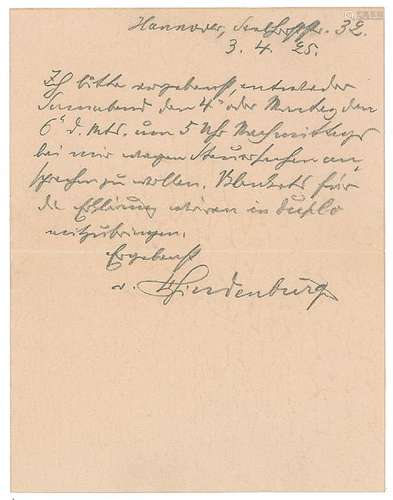 Hannover, Seelhorststr. 32.
3. 4. 25.
Ich bitte ergebenst, entweder
Sonnabend den 4ten oder Montag den
6ten d. Mts. um 5 Uhr Nachmittags
bei mir wegen Steuersachen vor-
sprechen zu wollen. Blankets für
die Erklärung wären in duplo
mitzubringen.
Ergebenst
v. Hindenburg